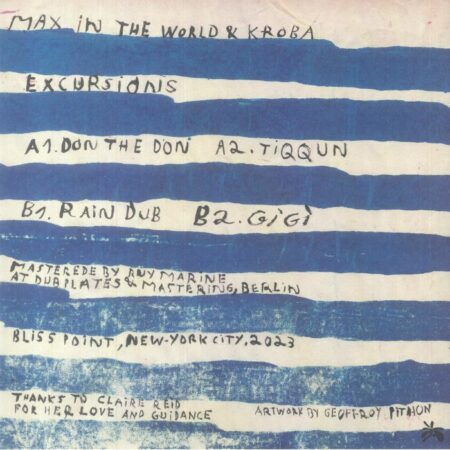 MAX IN THE WORLD & KROBA
EXCURSIONS
A1. DON THE DON A2. TIQQUN
B1. RAIN DUB B2. GIGI
MASTEREDE BY RUY MARINE
AT DUBPLATES & MASTERING, BERLIN
BLISS POINT, NEW-YORK CITY, 2023
THANKS TO CLAIRE REID
FOR HER LOVE AND GUIDANCE
ARTWORK BY GEOFFROY PITHON